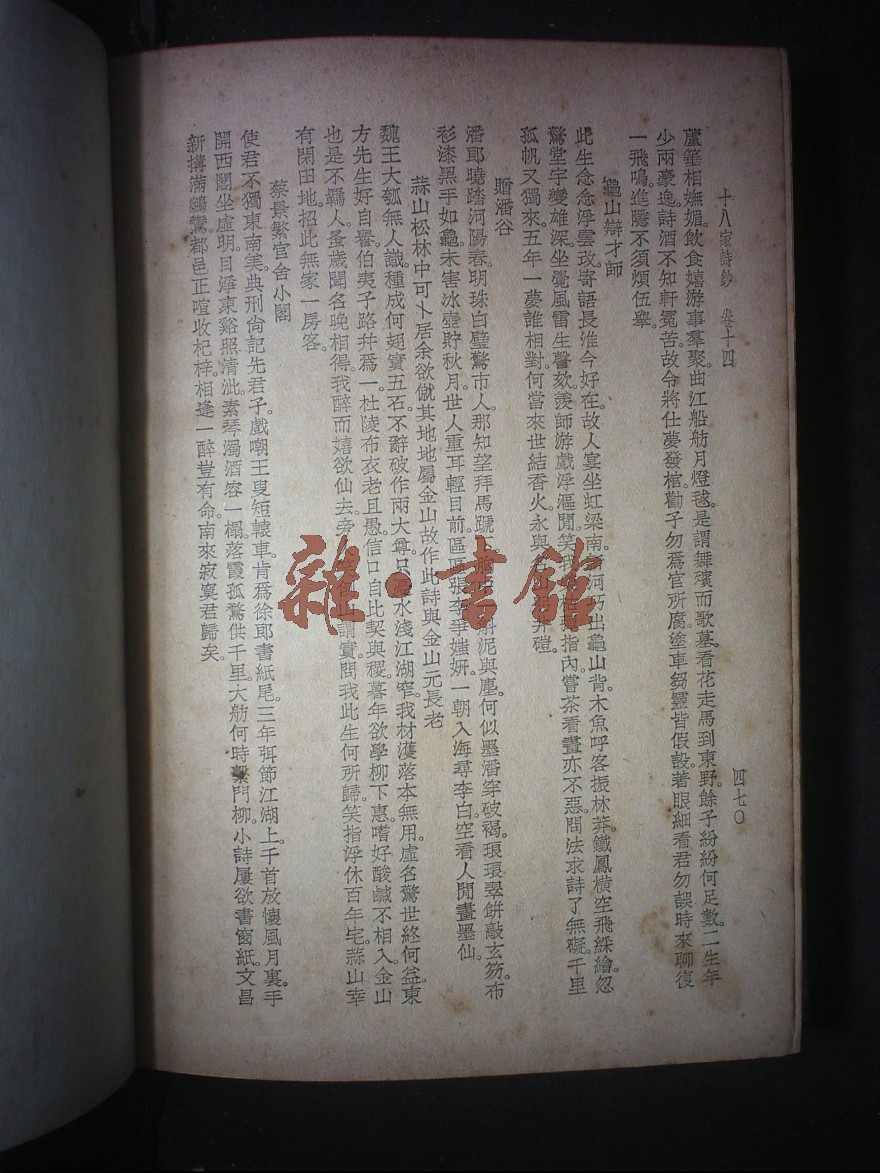 十八家詩鈔　卷十四　四七〇
蘆籬相嫵媚。飲食嬉游事羣聚。曲江船舫月燈毬。是謂舞殯而歌墓。看花走馬到東野。餘子紛紛何足數。二生年
少兩豪逸。詩酒不知軒冕苦。故令將仕夢發棺。勸子勿爲官所腐。塗車芻靈皆假設。著眼細看君勿誤。時來聊復
一飛鳴。進隱不須煩伍舉。
龜山辯才師
此生念念浮雲改。寄語長淮今好在。故人宴坐虹梁南。新河巧出龜山背。木魚呼客振林莽。鐵鳳橫空飛綵繪。忽
驚堂宇變雄深。坐覺風雷生謦欬。羨師游戲浮漚間。笑我 指內。嘗茶看畫亦不惡。問法求詩了無礙。千里
孤帆又獨來。五年一夢誰相對。何當來世結香火。永與 井磑。
贈潘谷
潘郎曉踏河陽春。明珠白璧驚市人。那知望拜馬蹏下。胸中 斛泥與塵。何似墨潘穿破褐。琅琅翠餅敲玄笏。布
衫漆黑手如龜。未害冰壺貯秋月。世人重耳輕目前。區區張李爭媸妍。一朝入海尋李白。空看人閒畫墨仙。
蒜山松林中可卜居余欲僦其地地屬金山故作此詩與金山元長老
魏王大瓠無人識。種成何翅實五石。不辭破作兩大尊。只憂水淺江湖窄。我材濩落本無用。虛名驚世終何益。東
方先生好自譽。伯夷子路幷爲一。杜陵布衣老且愚。信口自比契與稷。暮年欲學柳下惠。嗜好酸鹹不相入。金山
也是不羈人。蚤歲聞名晚相得。我醉而嬉欲仙去。旁 謂實。問我此生何所歸。笑指浮休百年宅。蒜山幸
有閑田地。招此無家一房客。
蔡景繁官舍小閣
使君不獨東南美。典刑尙記先君子。戲嘲王叟短轅車。肯爲徐郎書紙尾。三年弭節江湖上。千首放懷風月裏。手
開西閣坐虛明。目淨東谿照清泚。素琴濁酒容一榻。落霞孤鶩供千里。大舫何時繫門柳。小詩屢欲書窗紙。文昌
新搆滿鵷鸞。都邑正喧收杞梓。相逢一醉豈有命。南來寂寞君歸矣。
雜·書館